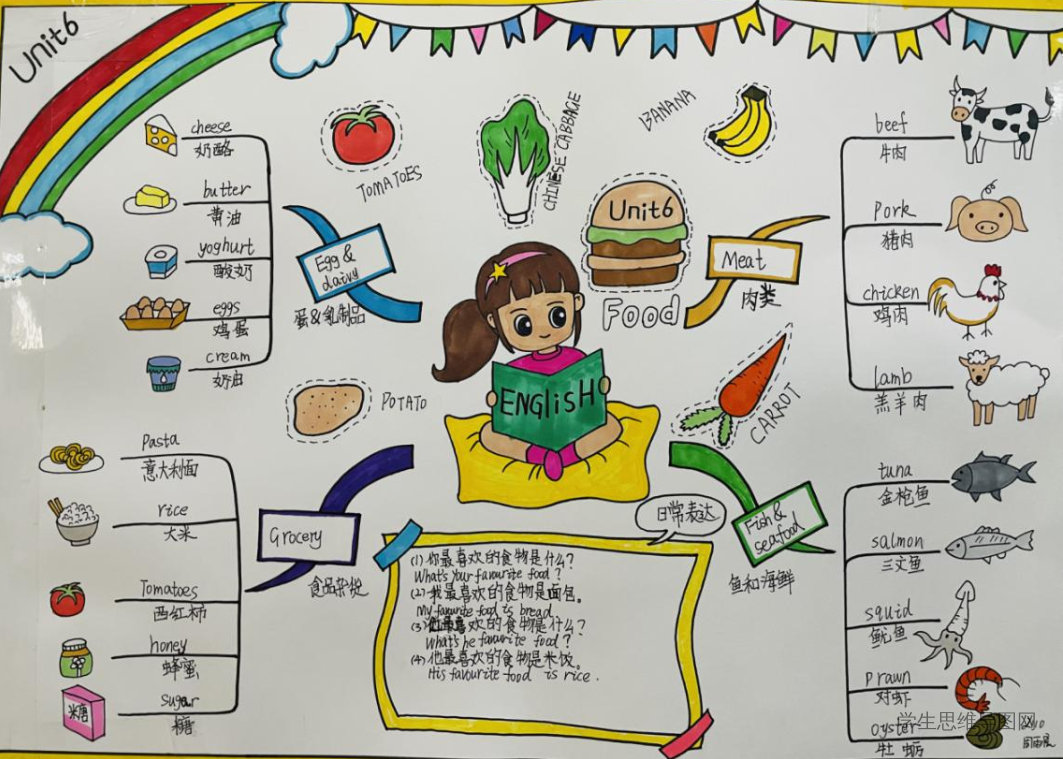 Unit6
TOMATOES
CHINESE CABBAGE
BANANA
Unit6
Food
POTATO
CARROT
ENGLISH
Egg &
dairy
蛋&乳制品
cheese
奶酪
butter
黄油
yoghurt
酸奶
eggs
鸡蛋
cream
奶油
Meat
肉类
beef
牛肉
Pork
猪肉
chicken
鸡肉
lamb
羔羊肉
Grocery
食品杂货
Pasta
意大利面
rice
大米
Tomatoes
西红柿
honey
蜂蜜
sugar
糖
米糖
Fish &
seafood
鱼和海鲜
tuna
金枪鱼
salmon
三文鱼
squid
鱿鱼
prawn
对虾
oyster
牡蛎
日常表达
(1)你最喜欢的食物是什么?
What's your favourite food?
(2)我最喜欢的食物是面包。
My favurite food is bread
(3)他最喜欢的食物是什么?
What's he favourite food?
(4)他最喜欢的食物是米饭。
His favourite food is rice.
学生思维导图网